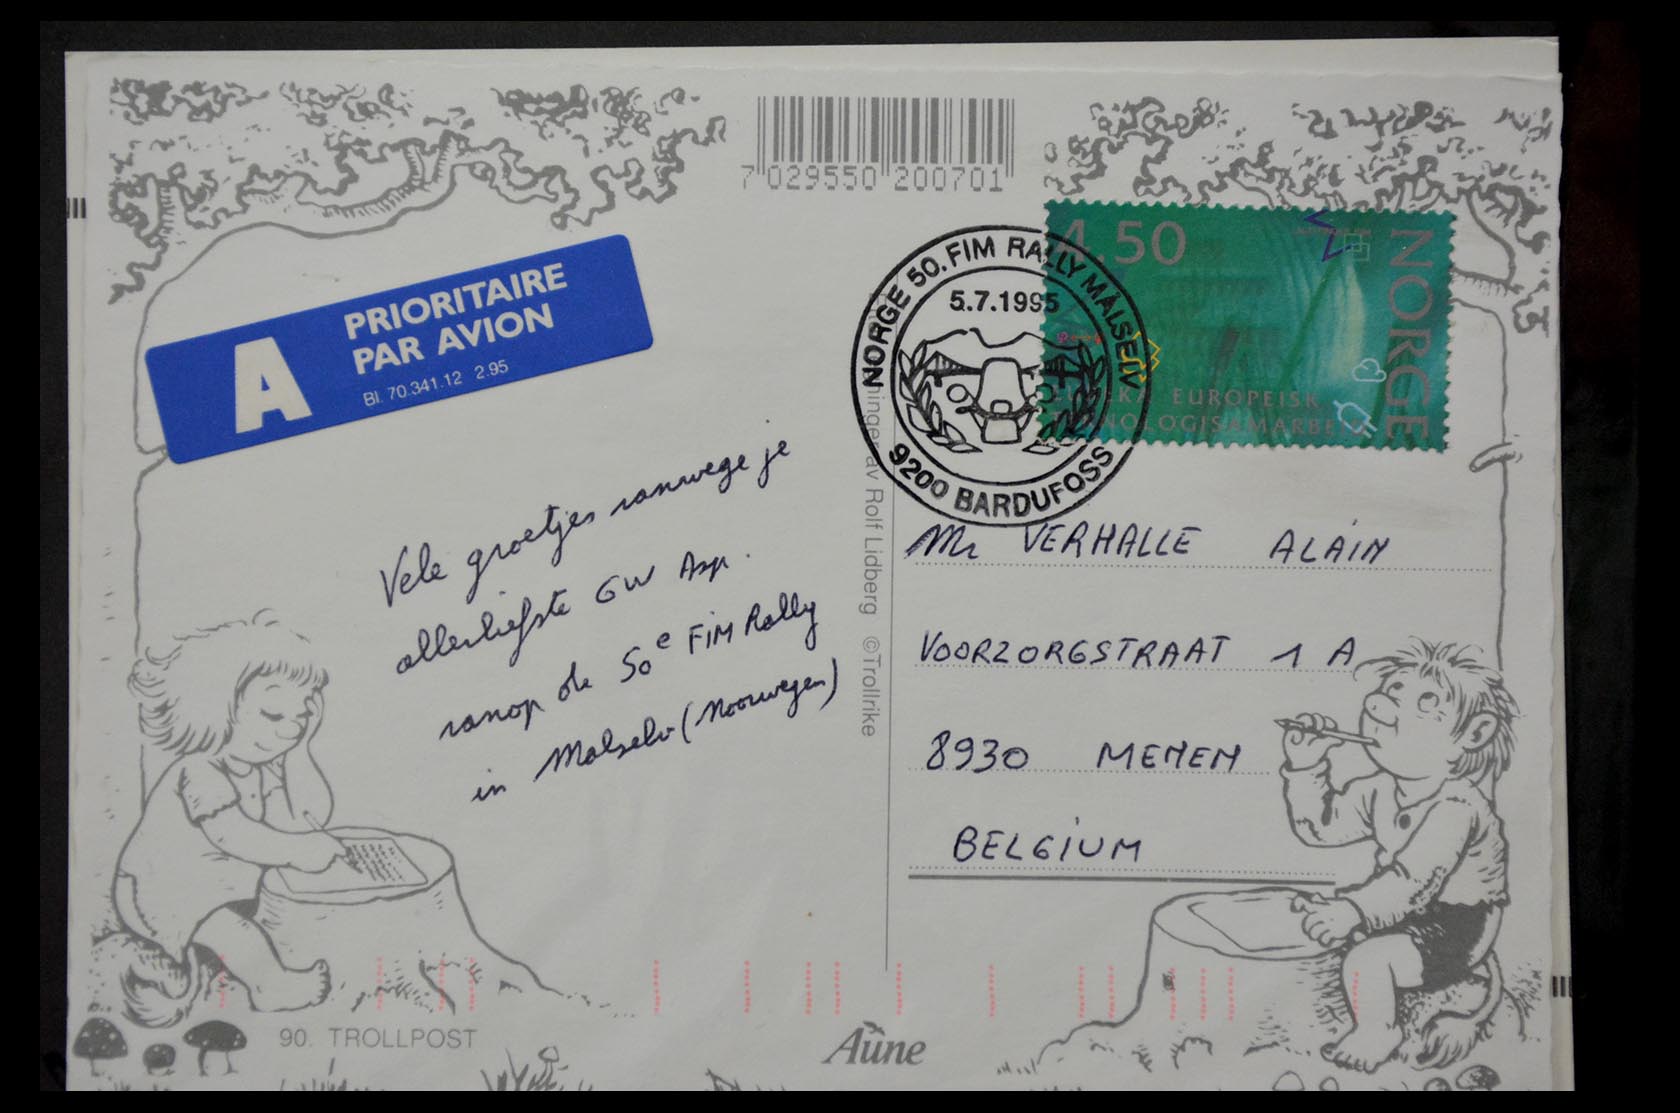 7 029550 200701
A PRIORITAIRE
PAR AVION
Bl. 70.341.12 2.95
NORGE 50. FIM RALLY MÅLSELV
5.7.1995
9200 BARDUFOSS
4.50
NORGE
EUREKA EUROPEISK
TEKNOLOGISAMARBEID
Vele groetjes vanwege je
allerliefste GW Asp.
vanop de 50e FIM Rally
in Malselv (Noorwegen)
Tegninger av Rolf Lidberg ©Trollrike
Mr VERHALLE ALAIN
VOORZORGSTRAAT 1 A
8930 MENEN
BELGIUM
90. TROLLPOST
Aune